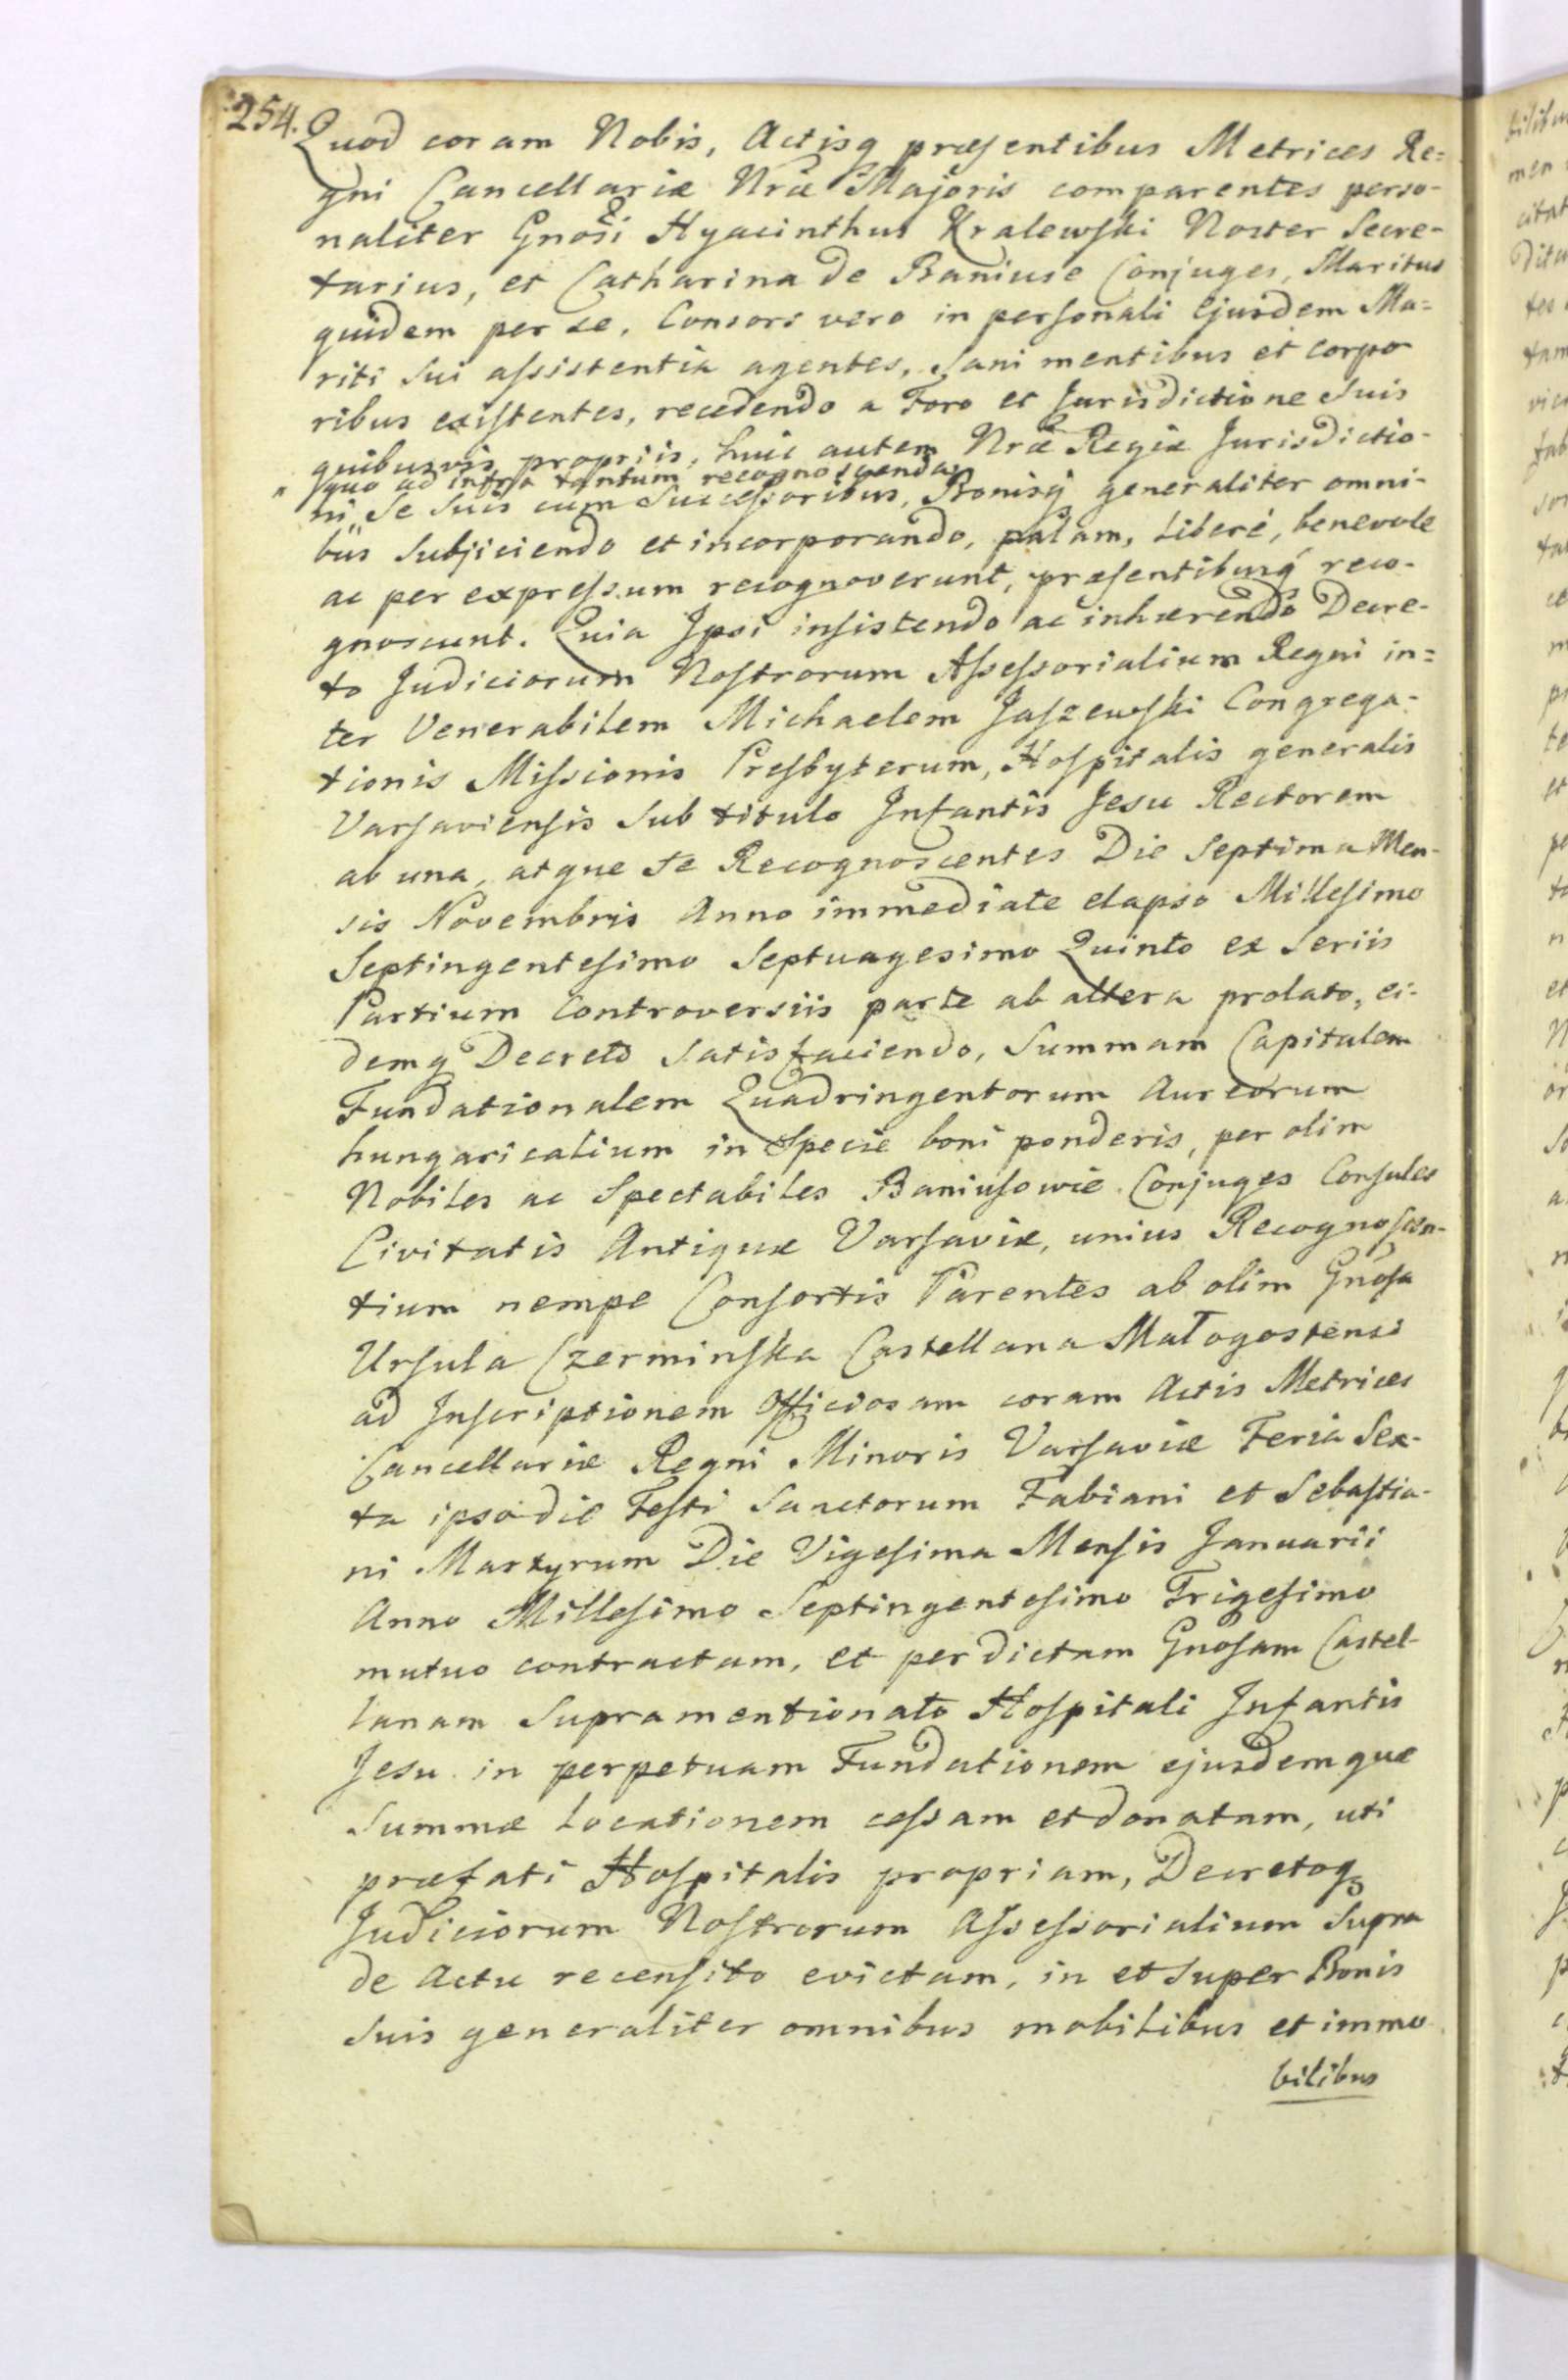 254.
Quod coram Nobis, Actisq præsentibus Metrices Re=
gni Cancellariæ Nræ Majoris comparentes perso-
naliter Gnosi Hyacinthus Kralewski Noster Secre-
tarius, et Catharina de Baniuse Conjuges, Maritus
quidem per se, Consors vero in personali Ejusdem Ma=
riti Sui assistentia agentes, Sani mentibus et corpo
ribus existentes, recedendo a Foro et Jurisdictione Suis
quibusvis propriis, huic autem Nræ Regiæ Jurisdictio-
" quo ad infra tantum recognoscenda,
ni „ Se Suis cum Successoribus, Bonisq generaliter omni-
bus Subjiciendo et incorporando, palam, Liberè, benevole
ac per expressum recognoverunt, præsentibusq reco-
gnoscunt. Quia Ipsi insistendo ac inhærendo Decre-
to Judiciorum Nostrorum Assessorialium Regni in=
ter Venerabilem Michaelem Jaszewski Congrega-
tionis Missionis Presbyterum, Hospitalis generalis
Varsaviensis Sub titulo Infantis Jesu Rectorem
ab una, atque Se Recognoscentes Die Septima Men-
sis Novembris Anno immediate elapso Millesimo
Septingentesimo Septuagesimo Quinto ex Seriis
Partium Controversiis parte ab altera prolato, ei-
demq Decreto Satisfaciendo, Summam Capitalem
Fundationalem Quadringentorum Aureorum
hungaricalium in Specie boni ponderis, per olim
Nobiles ac Spectabiles Baniusowie Conjuges Consules
Civitatis Antiquæ Varsaviæ, unius Recognoscen-
tium nempe Consortis Parentes ab olim Gnosa
Ursula Czerminska Castellana Małogostensi
ad Inscriptionem Officiosam coram Actis Metrices
Cancellariæ Regni Minoris Varsaviæ Feria Sex-
ta ipso die Festi Sanctorum Fabiani et Sebastia-
ni Martyrum Die Vigesima Mensis Januarii
Anno Millesimo Septingentesimo Trigesimo
mutuo contractam, et per dictam Gnosam Castel-
lanam Supramentionato Hospitali Infantis
Jesu in perpetuam Fundationem ejusdemque
Summæ Locationem cessam et donatam, uti
præfati Hospitalis propriam, Decretoq
Judiciorum Nostrorum Assessorialium Supra
de Actu recensito evictam, in et Super Bonis
Suis generaliter omnibus mobilibus et immo
bilibus